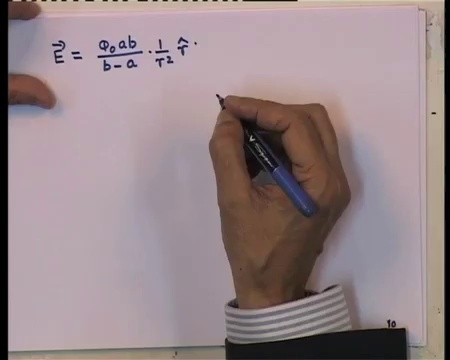 E⃗ = φ₀ab/(b-a) · 1/r² r̂.
10